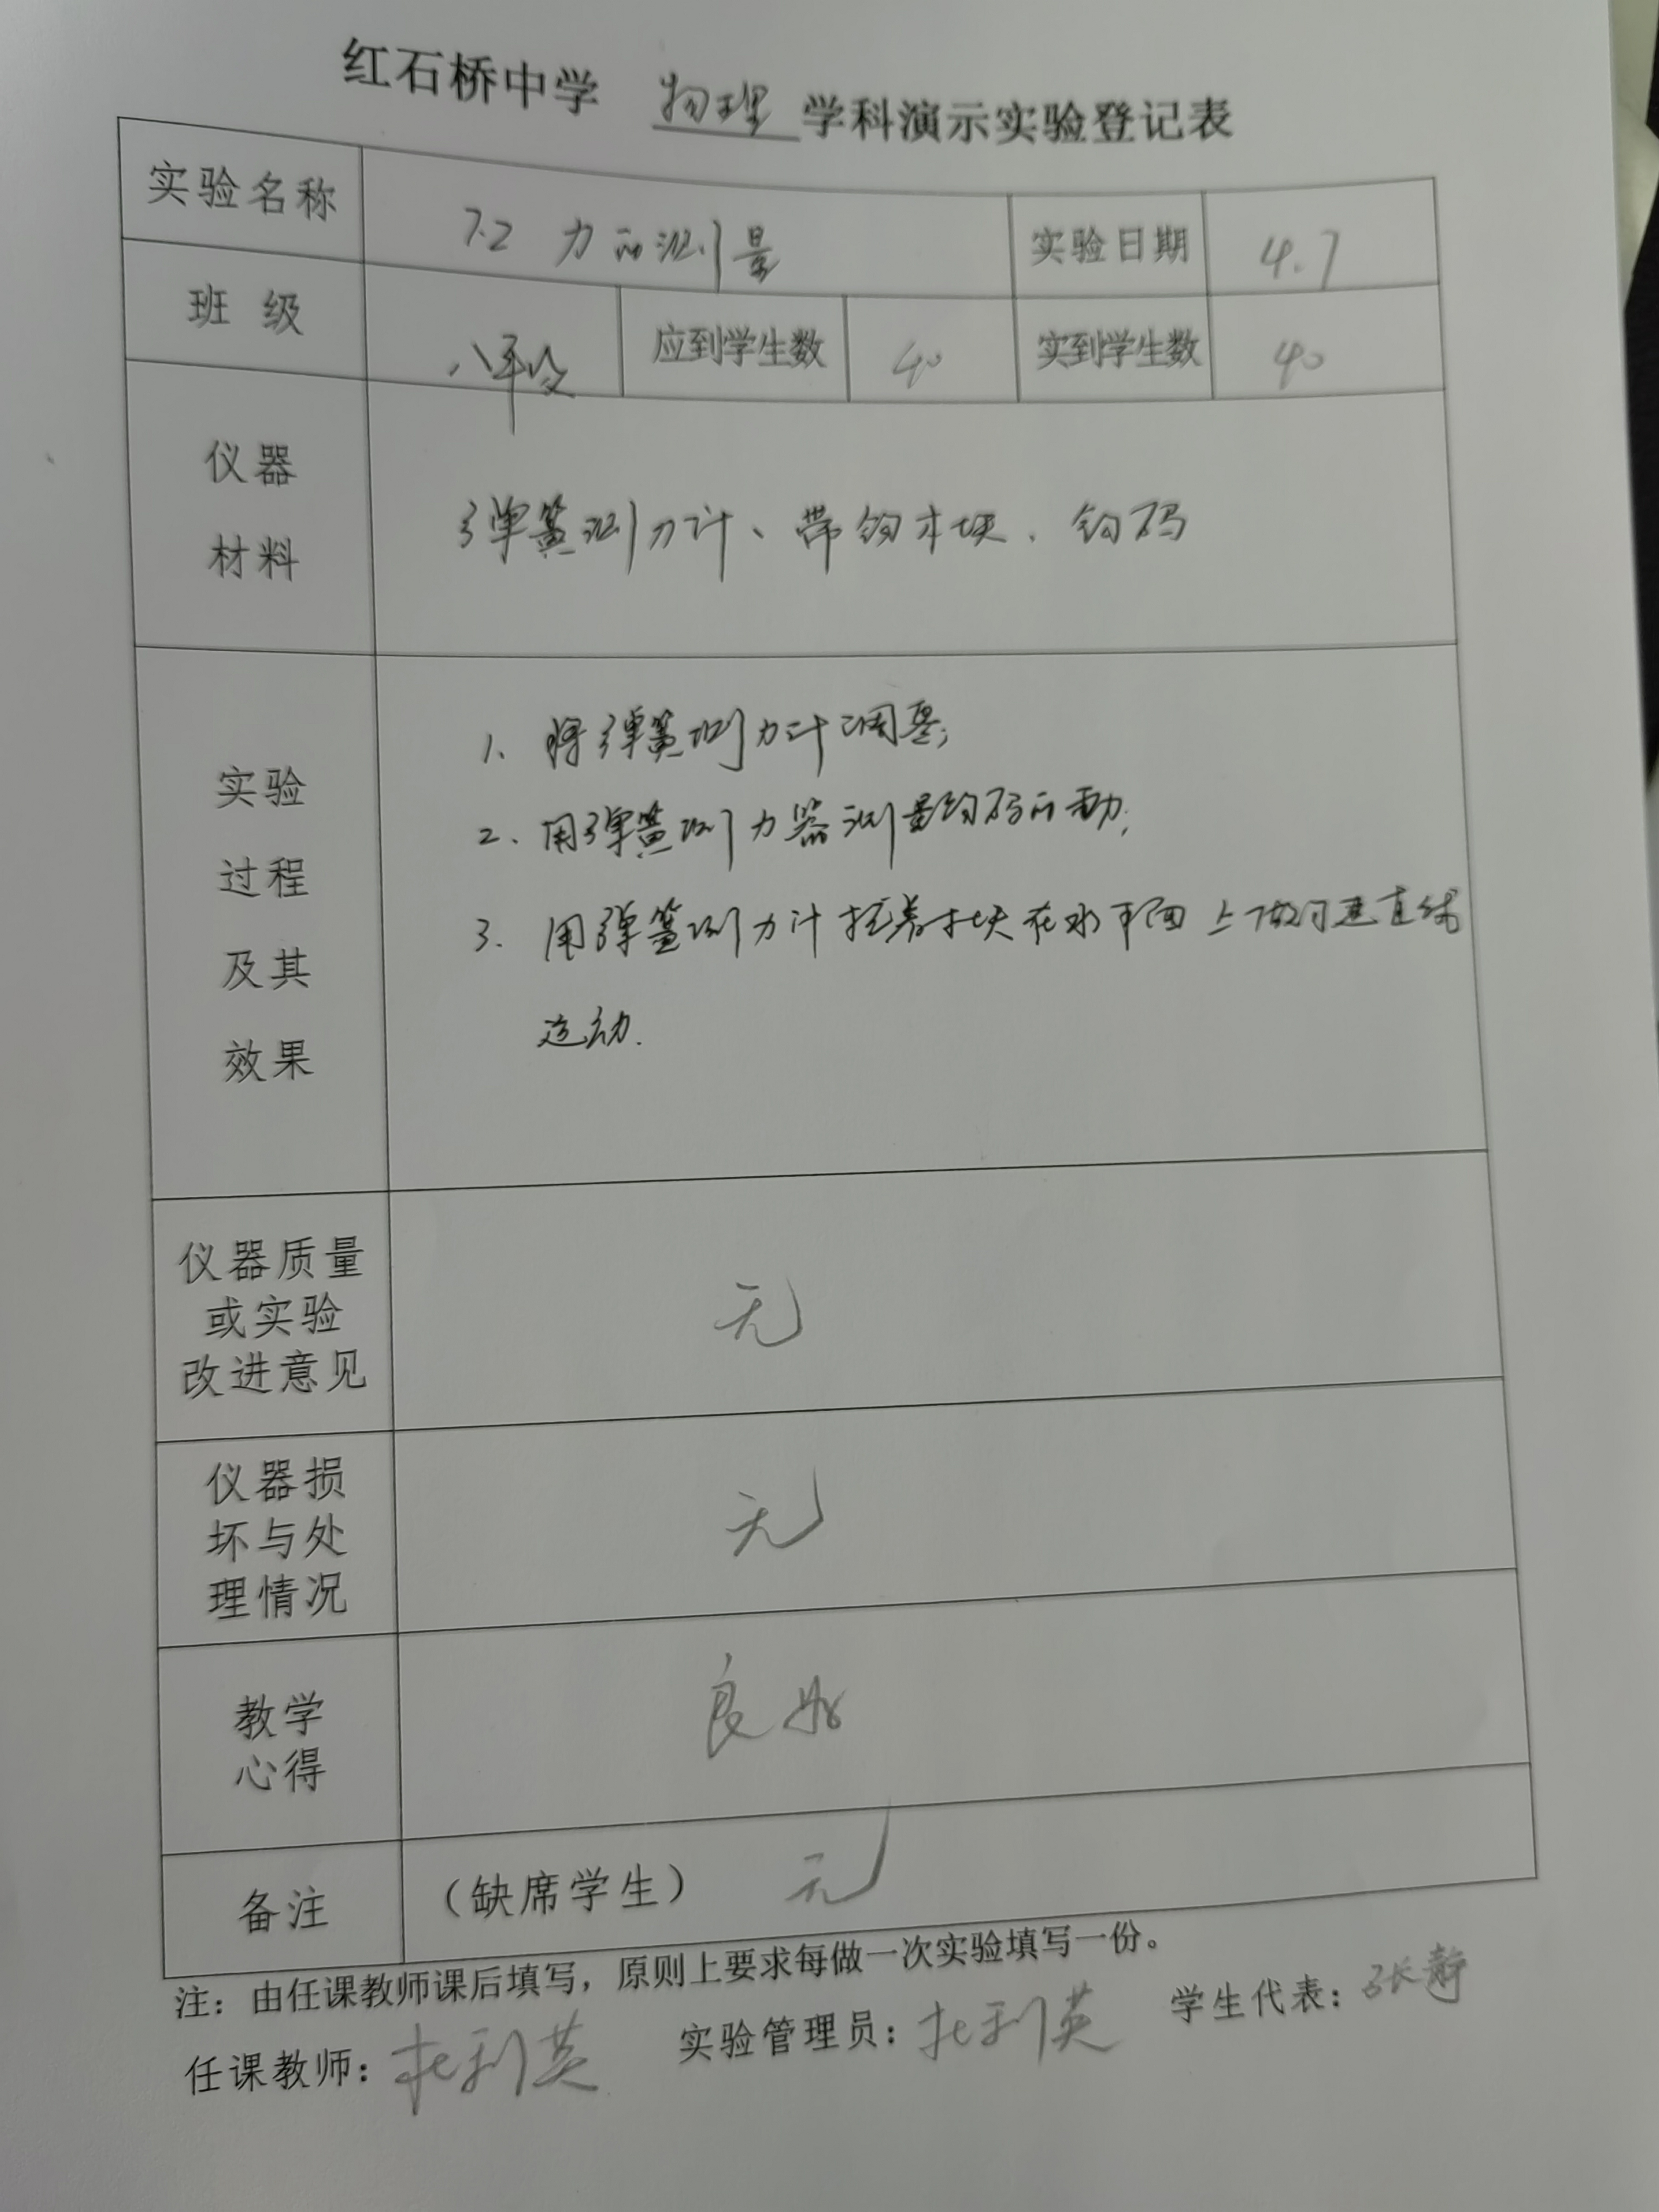 红石桥中学 物理 学科演示实验登记表
实验名称 7.2 力的测量 实验日期 4.7
班 级 八年级 应到学生数 40 实到学生数 40
仪器
材料
弹簧测力计、带钩木块、钩码
实验
过程
及其
效果
1、将弹簧测力计调零;
2、用弹簧测力器测量钩码的重力;
3、用弹簧测力计拉着木块在水平面上做匀速直线
运动.
仪器质量
或实验
改进意见
无
仪器损
坏与处
理情况
无
教学
心得
良好
备注 (缺席学生) 无
注：由任课教师课后填写，原则上要求每做一次实验填写一份。
任课教师： 利英 实验管理员： 利英 学生代表：张静